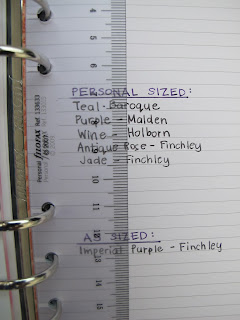 PERSONAL SIZED:
Teal - Baroque
Purple - Malden
Wine - Holborn
Antique Rose - Finchley
Jade - Finchley
A5 SIZED:
Imperial Purple - Finchley
4
5
6
7
8
9
10
11
12
13
14
15
Personal filofax Ref 133633